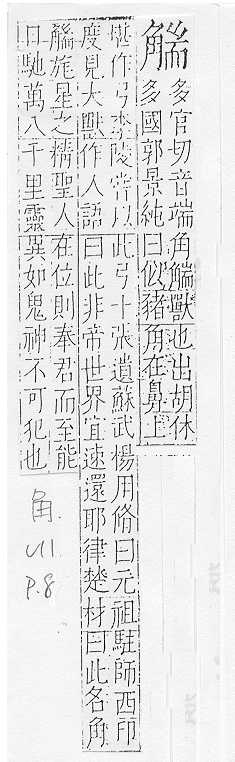 䚗
多官切音端角䚗獸也出胡休
多國郭景純曰似豬角在鼻上
堪作弓李陵嘗以此弓十張遺蘇武楊用脩曰元祖駐師西印
度見大獸作人語曰此非帝世界宜速還耶律楚材曰此名角
䚗旄星之精聖人在位則奉君而至能
日馳萬八千里靈異如鬼神不可犯也
角
P.8